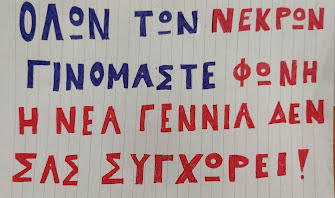 ΟΛΩΝ ΤΩΝ ΝΕΚΡΩΝ
ΓΙΝΟΜΑΣΤΕ ΦΩΝΗ
Η ΝΕΑ ΓΕΝΝΙΑ ΔΕΝ
ΣΑΣ ΣΥΓΧΩΡΕΙ!